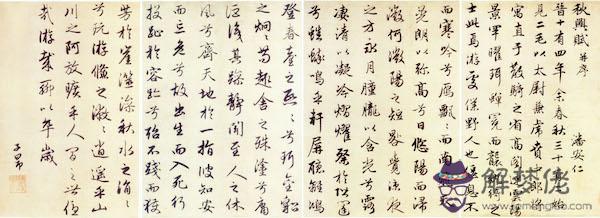 秋興賦 并序 潘安仁
晉十有四年余春秋三十有二始
見二毛以太尉掾兼虎賁中郎將
寓直于散騎之省高閣連雲陽
景罕曜珥蟬冕而襲紈綺之
士此焉游處僕野人也偃息不
而寒吟兮鴈飄飄而南飛天
晃朗以彌高兮日悠陽而浸
微何微陽之短晷覺涼夜
之方永月朣朧以含光兮露
淒清以凝冷熠燿粲於階闥
兮蟋蟀鳴乎軒屏聽離鴻
登春臺之熙熙兮珥金貂
之炯炯苟趣舍之殊塗兮庸
詎識其躁靜聞至人之休
風兮齊天地於一指彼知安
而忘危兮故出生而入死行
投趾於容跡兮殆不踐而獲
芳於崖澨澡秋水之涓涓
兮玩游鯈之潎潎逍遙乎山
川之阿放曠乎人間之世優
哉游哉聊以卒歲
子昂
解梦佬